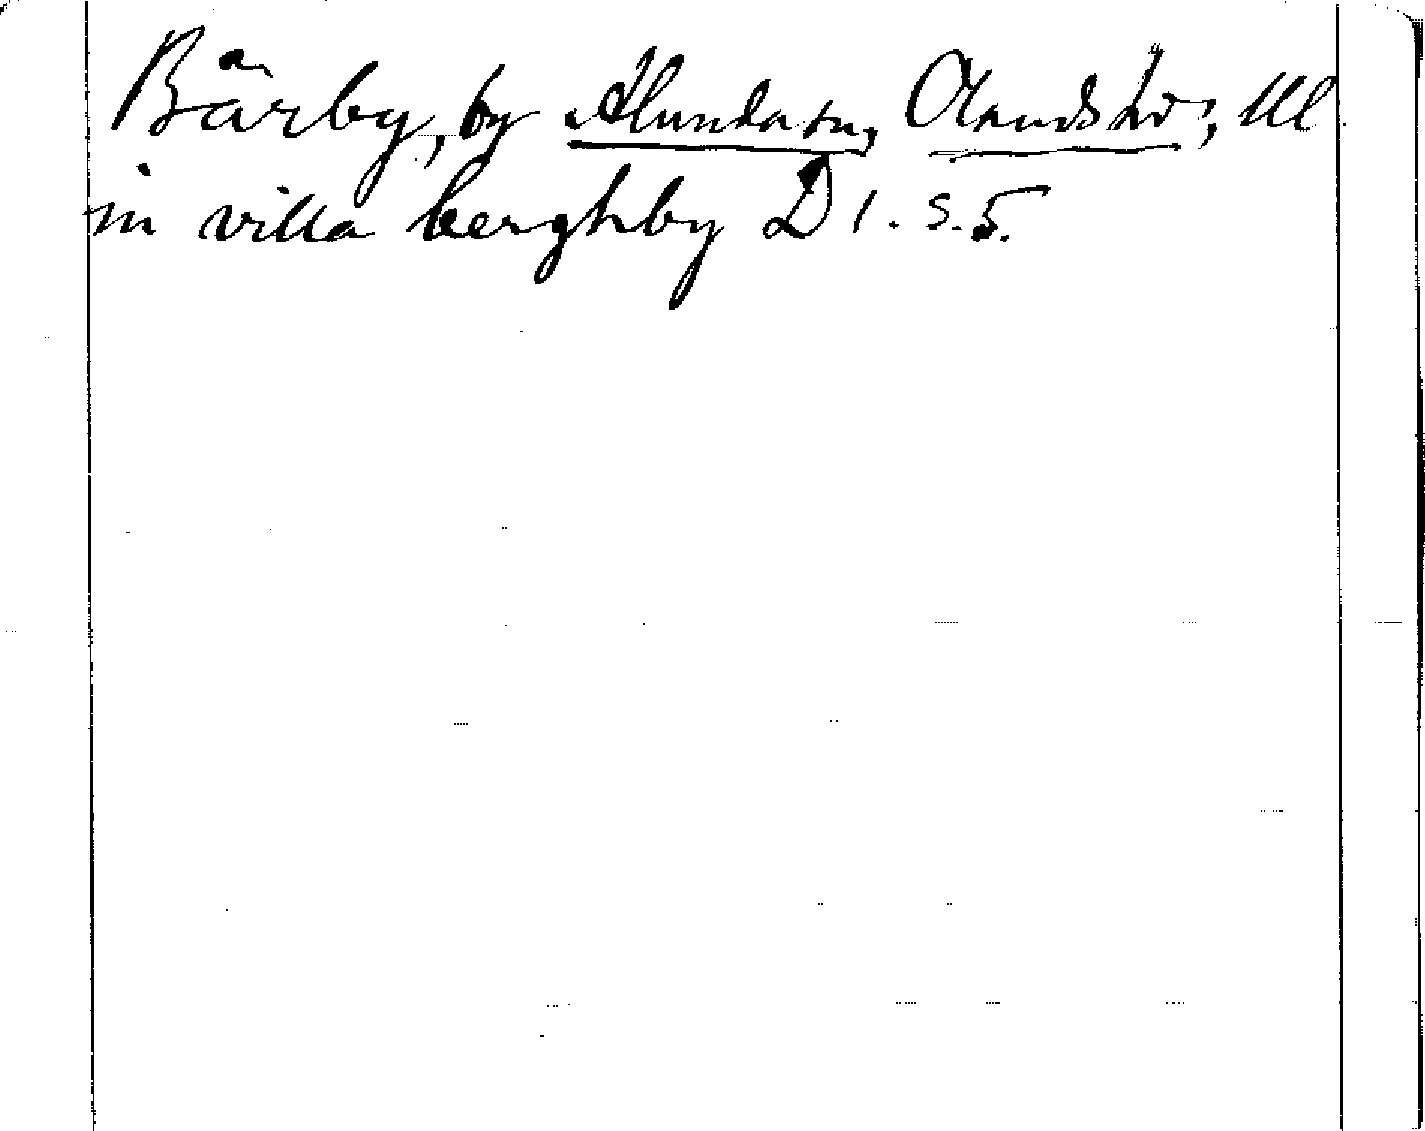 Bärby, by Alunda sn, Olands hd, Ul
in villa berghby D 1. s. 5.